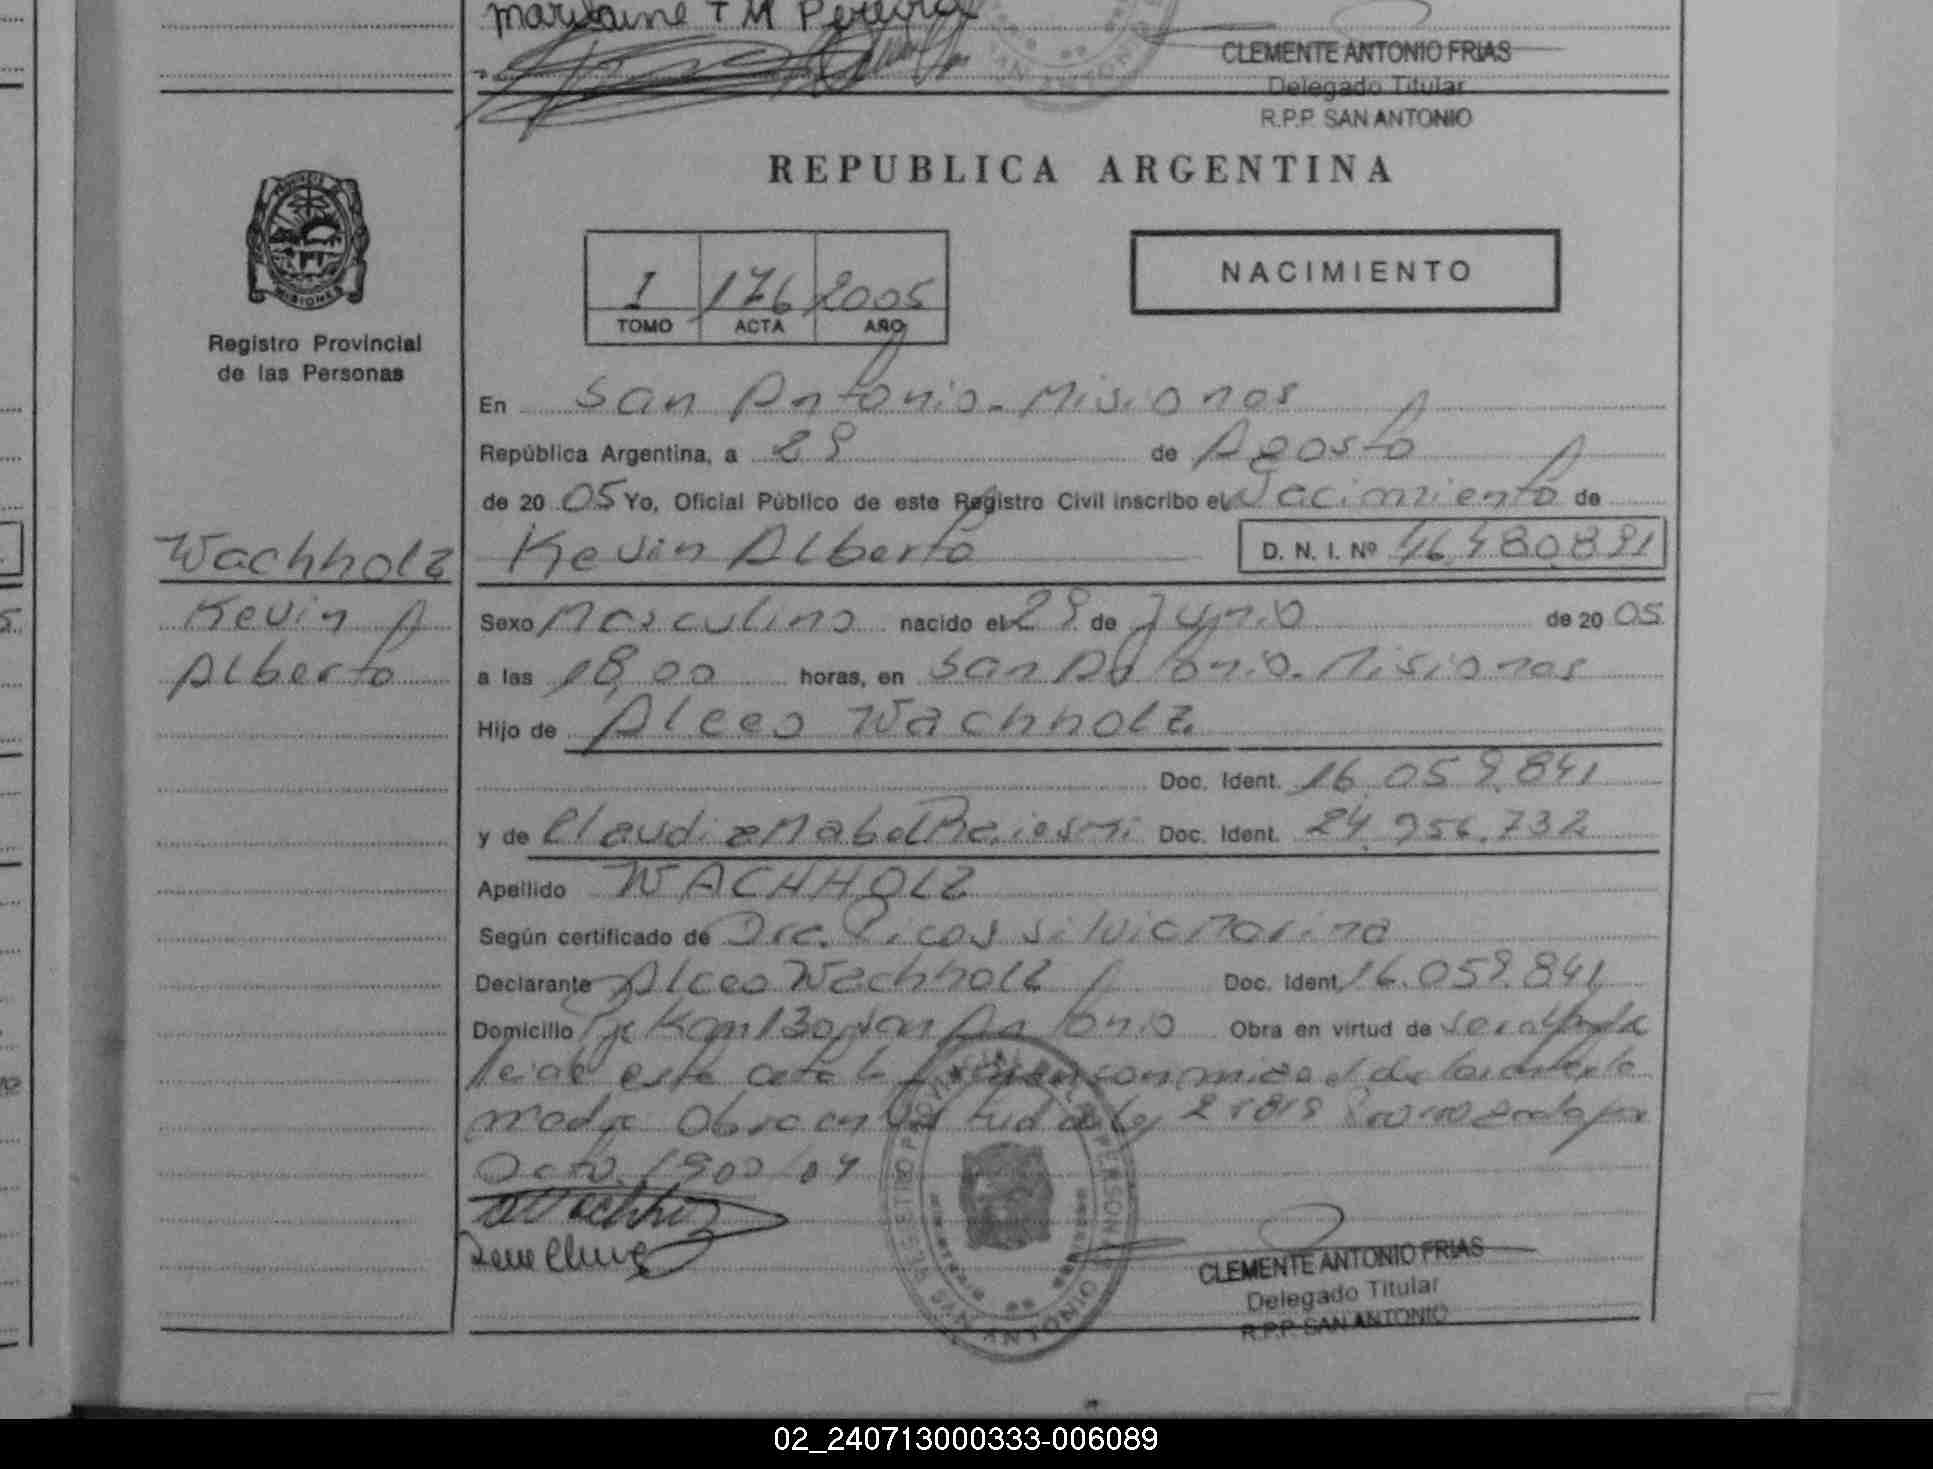 CLEMENTE ANTONIO FRIAS
Delegado Titular
R.P.P. SAN ANTONIO
REPUBLICA ARGENTINA
NACIMIENTO
I 176 2005
TOMO ACTA AÑO
Registro Provincial
de las Personas
En San Antonio - Misiones
República Argentina, a 29 de Agosto
de 20 05 Yo, Oficial Público de este Registro Civil inscribo el Nacimiento de
Wachholz Kevin Alberto D. N. I. Nº 46.480.891
Kevin
Alberto
Sexo Masculino nacido el 29 de Junio de 20 05
a las 18,00 horas, en San Antonio - Misiones
Hijo de Alceo Wachholz
Doc. Ident. 16.059.841
y de Claudia Mabel Doc. Ident. 24.956.732
Apellido WACHHOLZ
Según certificado de Dra. Picos Silvia Marina
Declarante Alceo Wachholz Doc. Ident. 16.059.841
Domicilio Pje Km 130, San Antonio Obra en virtud de
madre Obra en virtud de ley
Dcto. 1900/04
CLEMENTE ANTONIO FRIAS
Delegado Titular
R.P.P. SAN ANTONIO
02_240713000333-006089